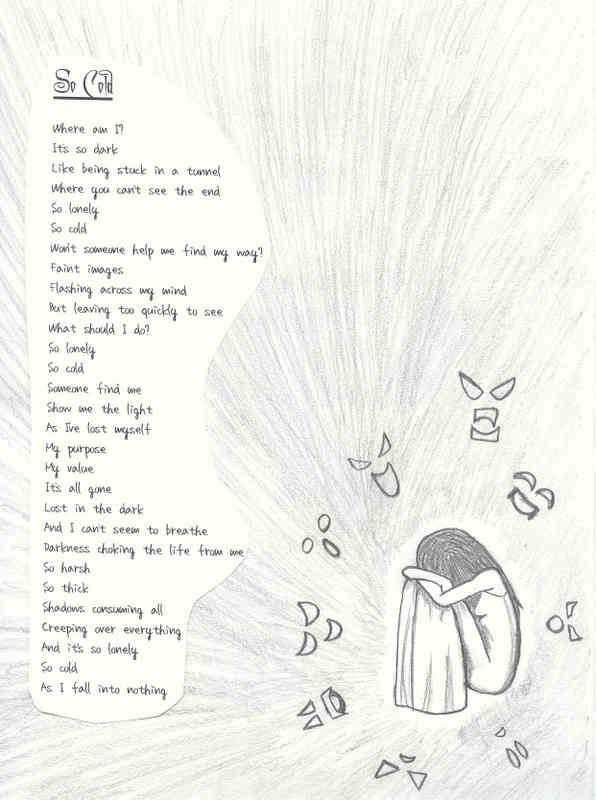 So Cold
Where am I?
It's so dark
Like being stuck in a tunnel
Where you can't see the end
So lonely
So cold
Won't someone help me find my way?
Faint images
Flashing across my mind
But leaving too quickly to see
What should I do?
So lonely
So cold
Someone find me
Show me the light
As I've lost myself
My purpose
My value
It's all gone
Lost in the dark
And I can't seem to breathe
Darkness choking the life from me
So harsh
So thick
Shadows consuming all
Creeping over everything
And it's so lonely
So cold
As I fall into nothing